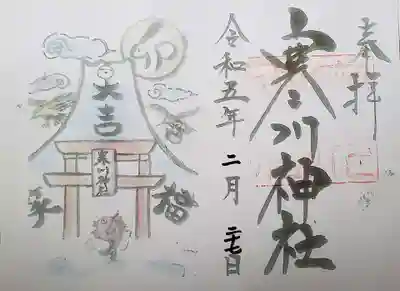 奉拝
寒川神社
令和五年二月二十七日
卯
大吉
寒川神社
福